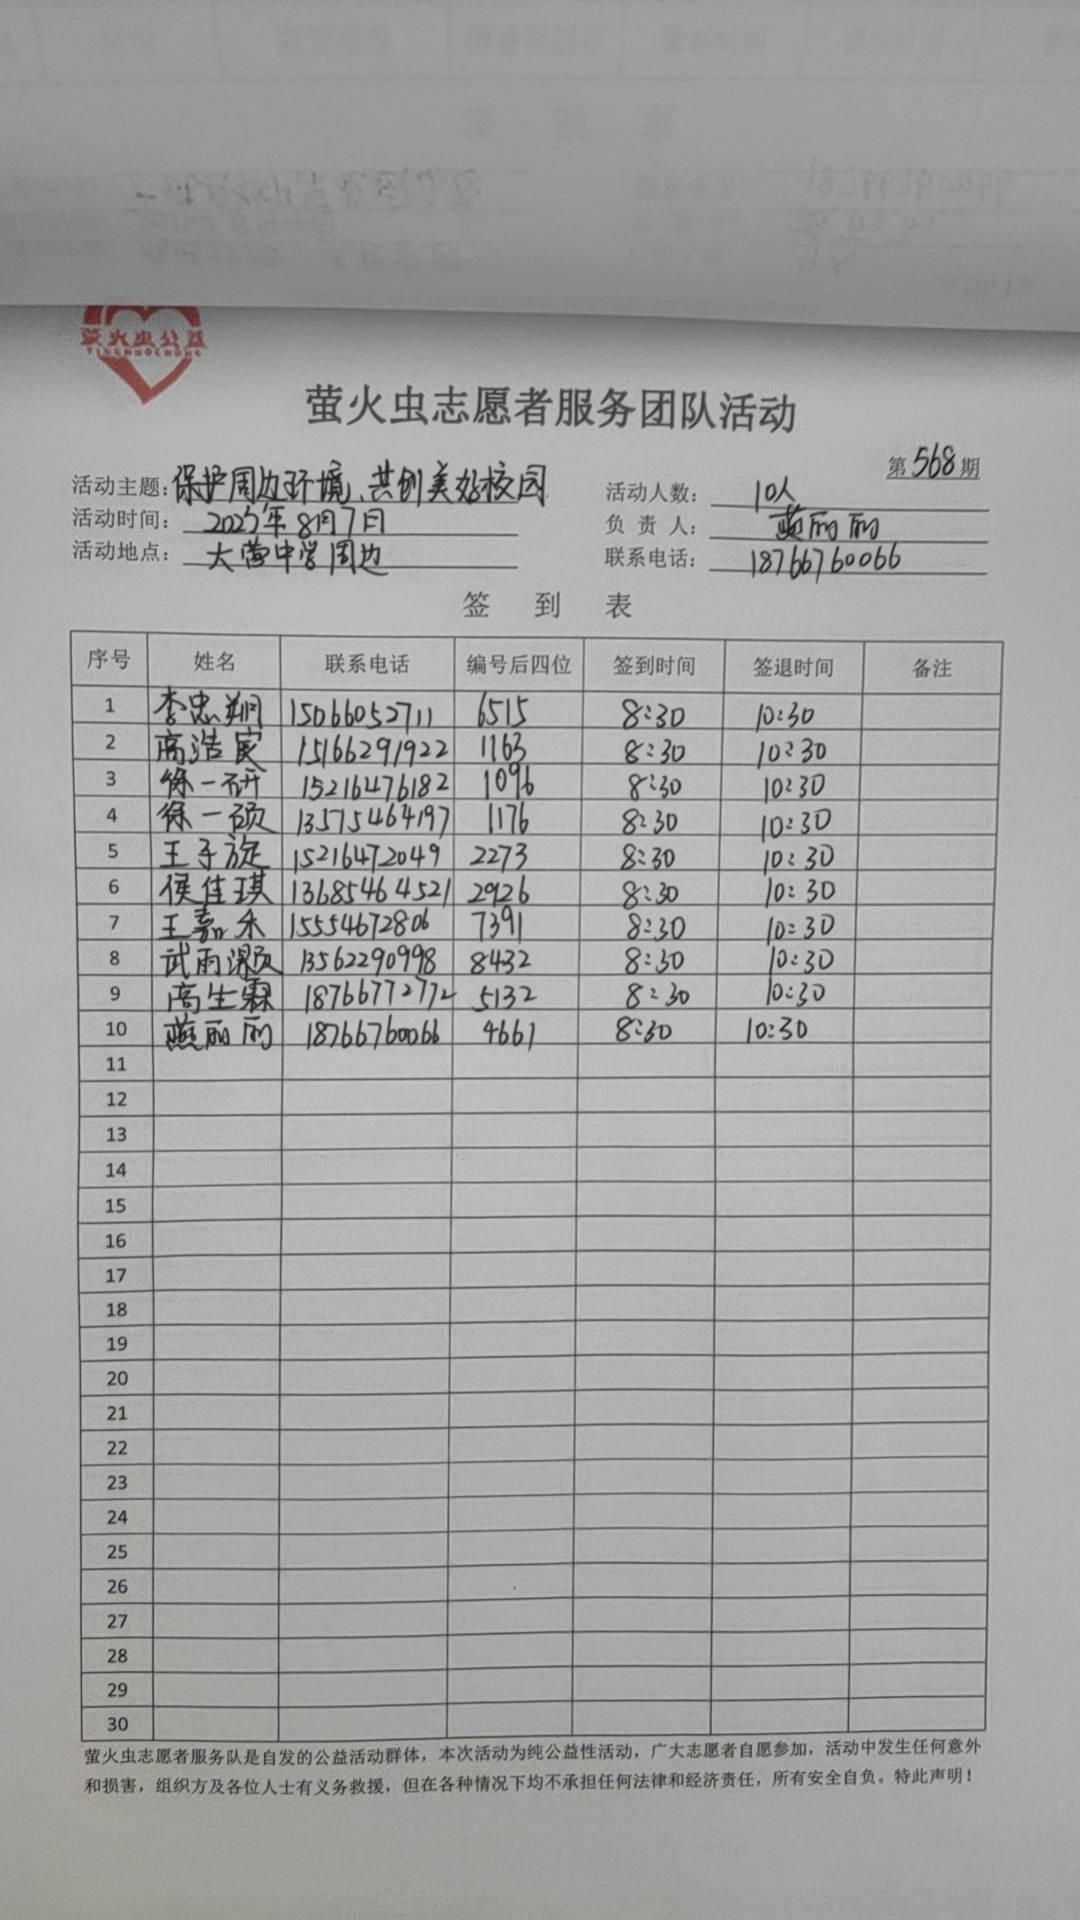 萤火虫公益
YINGHUOCHONG
萤火虫志愿者服务团队活动
第568期
活动主题：保护周边环境、共创美好校园 活动人数：10人
活动时间：2025年8月7日 负 责 人：燕丽丽
活动地点：大营中学周边 联系电话：18766760066
签 到 表
序号 姓名 联系电话 编号后四位 签到时间 签退时间 备注
1 李忠翔 15066052711 6515 8:30 10:30
2 高浩宸 15166291922 1163 8:30 10:30
3 徐一研 15216476182 1096 8:30 10:30
4 徐一硕 13575464197 1176 8:30 10:30
5 王子旋 15216472049 2273 8:30 10:30
6 侯佳琪 13685464521 2926 8:30 10:30
7 王嘉禾 15554672806 7391 8:30 10:30
8 武雨灏 13562290998 8432 8:30 10:30
9 高生霖 18766772772 5132 8:30 10:30
10 燕丽丽 18766760066 4661 8:30 10:30
11
12
13
14
15
16
17
18
19
20
21
22
23
24
25
26
27
28
29
30
萤火虫志愿者服务队是自发的公益活动群体，本次活动为纯公益性活动，广大志愿者自愿参加，活动中发生任何意外
和损害，组织方及各位人士有义务救援，但在各种情况下均不承担任何法律和经济责任，所有安全自负。特此声明！